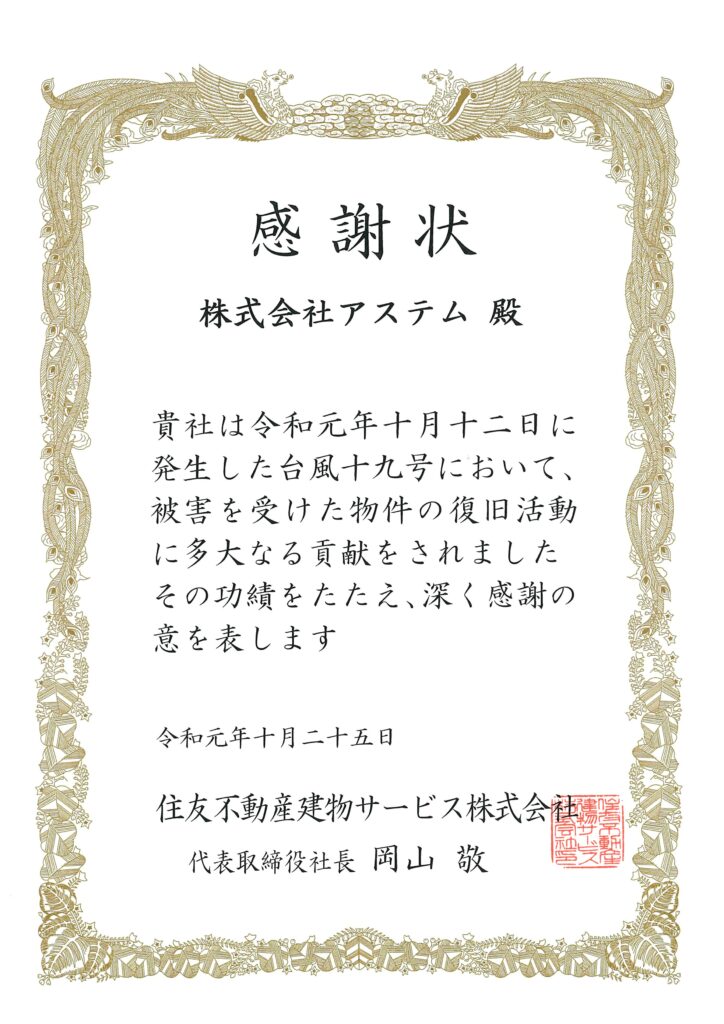 感謝状
株式会社アステム 殿
貴社は令和元年十月十二日に
発生した台風十九号において、
被害を受けた物件の復旧活動
に多大なる貢献をされました
その功績をたたえ、深く感謝の
意を表します
令和元年十月二十五日
住友不動産建物サービス株式会社
代表取締役社長 岡山 敬
住友不動産
建物サービス
株式会社印